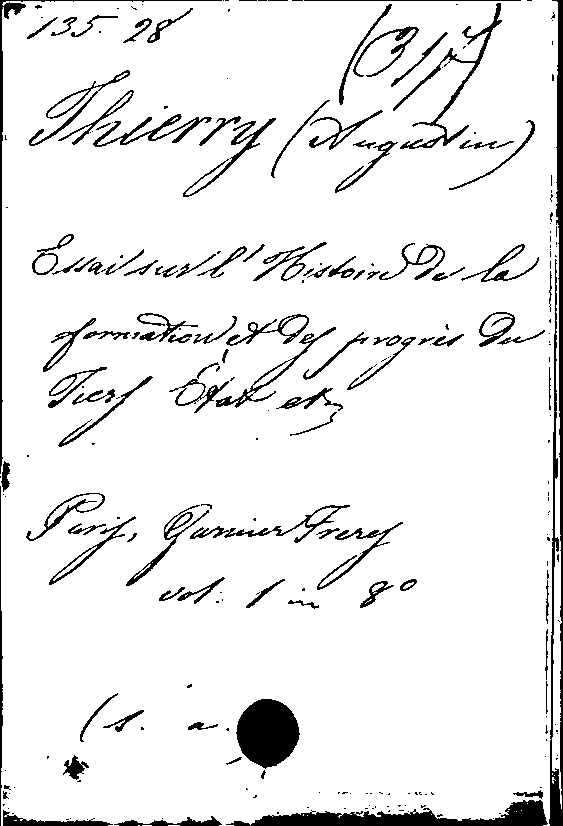 135. 28
(317)
Thierry (Augustin)
Essai sur l'Histoire de la
formation et des progrès du
Tiers État etc
Paris, Garnier Freres
vol. 1 in 8º
(s. a.